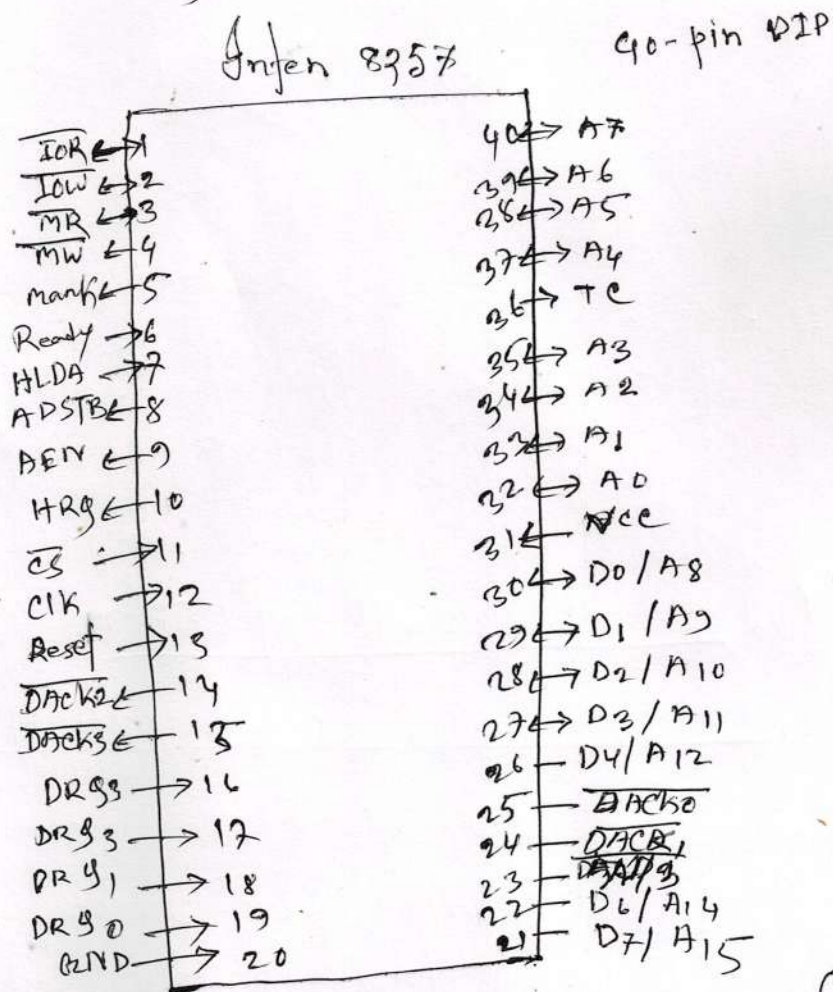 Inten 8257
40-pin DIP
IOR 1
IOW 2
MR 3
MW 4
mark 5
Ready 6
HLDA 7
ADSTB 8
AEN 9
HRQ 10
CS 11
CLK 12
Reset 13
DACK2 14
DACK3 15
DRQ3 16
DRQ3 17
DRQ1 18
DRQ0 19
GND 20
40 A7
39 A6
38 A5
37 A4
36 TC
35 A3
34 A2
33 A1
32 A0
31 VCC
30 D0/A8
29 D1/A9
28 D2/A10
27 D3/A11
26 D4/A12
25 DACK0
24 DACK1
23
22 D6/A14
21 D7/A15